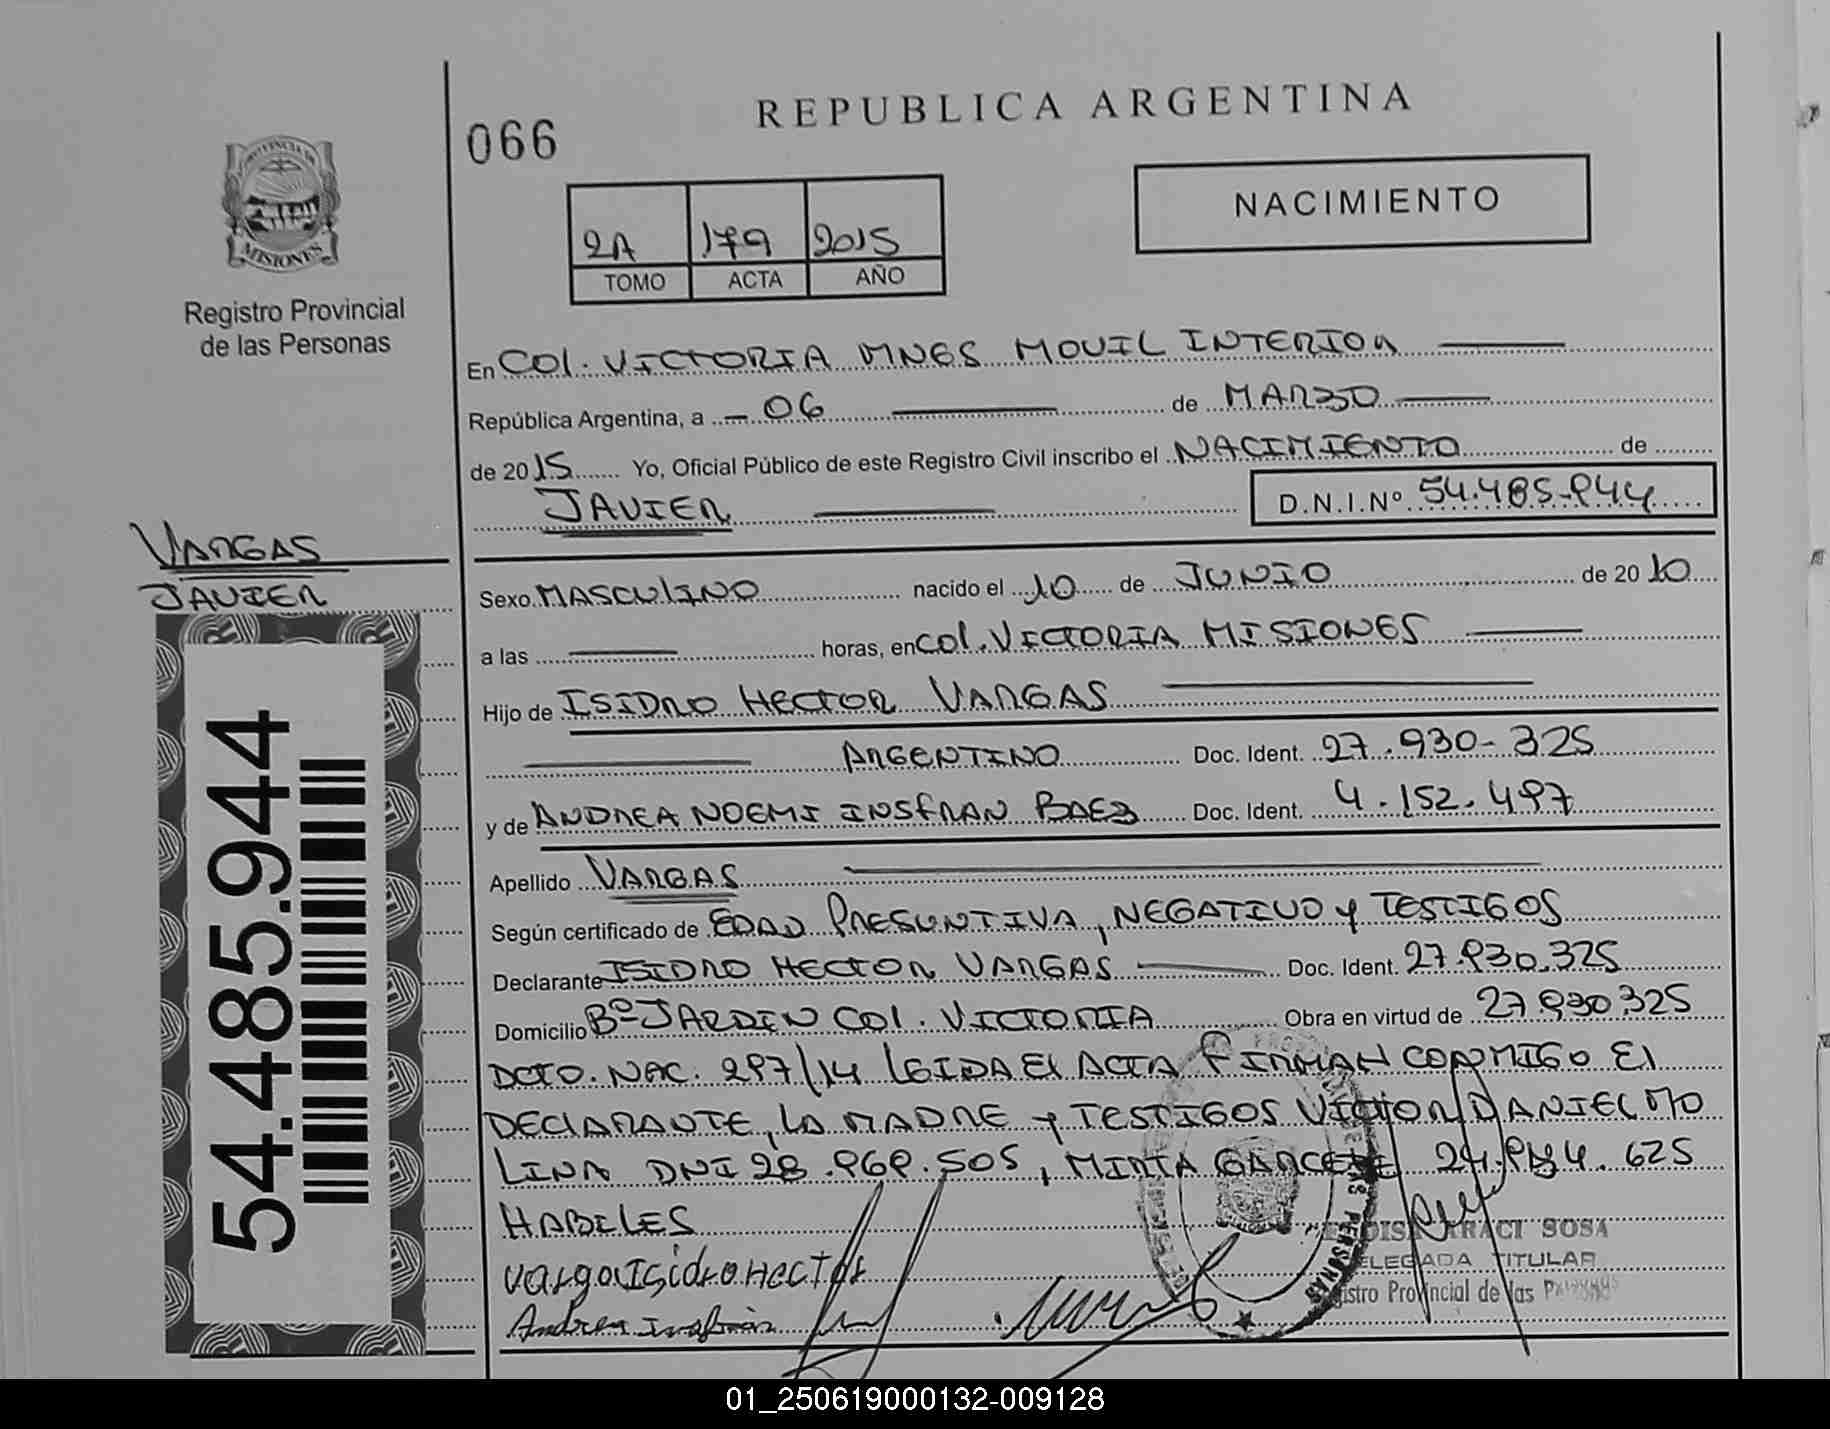 REPUBLICA ARGENTINA
066
NACIMIENTO
2A 179 2015
TOMO ACTA AÑO
PROVINCIA DE
MISIONES
Registro Provincial
de las Personas
En COL. VICTORIA MNES MOVIL INTERIOR
República Argentina, a 06 de MARZO
de 2015 Yo, Oficial Público de este Registro Civil inscribo el NACIMIENTO de
JAVIER D.N.I.Nº 54.485.944
VARGAS
JAVIER
54.485.944
Sexo MASCULINO nacido el 10 de JUNIO de 2010
a las horas, en COL. VICTORIA MISIONES
Hijo de ISIDRO HECTOR VARGAS
ARGENTINO Doc. Ident. 27.930.325
y de ANDREA NOEMI INSFRAN BAEZ Doc. Ident. 4.152.497
Apellido VARGAS
Según certificado de EDAD PRESUNTIVA, NEGATIVO y TESTIGOS
Declarante ISIDRO HECTOR VARGAS Doc. Ident. 27.930.325
Domicilio Bº JARDIN COL. VICTORIA Obra en virtud de 27.930.325
DCTO. NAC. 297/14 LEIDA EL ACTA FIRMAN CONMIGO EL
DECLARANTE, LA MADRE y TESTIGOS VICTOR DANIEL MO
LINA DNI 28.969.505, MIRTA
HABILES
Vargas Isidro Hector
Andrea Insfran
ARACI SOSA
DELEGADA TITULAR
Registro Provincial de las
01_250619000132-009128